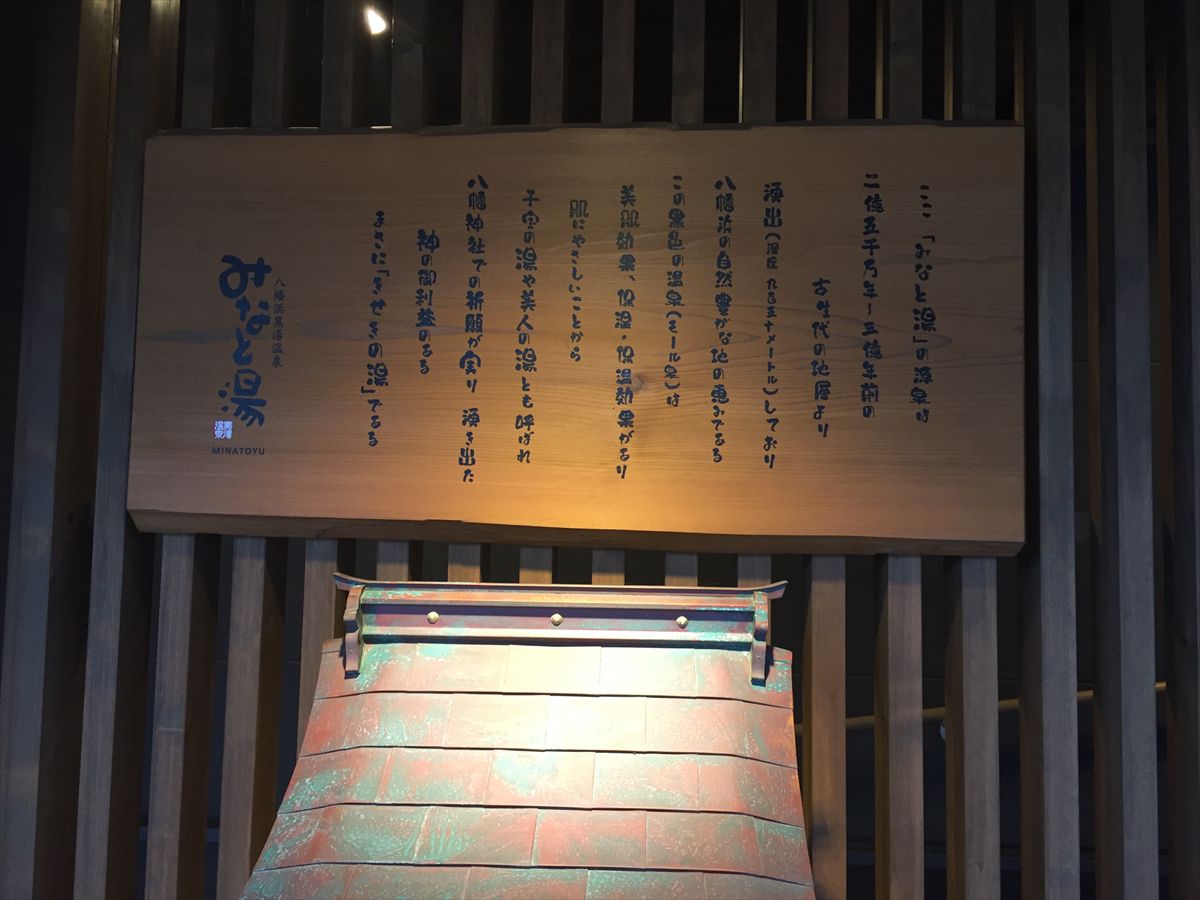 ここ「みなと湯」の源泉は
二億五千万年~三億年前の
古生代の地層より
湧出(深度 九百五十メートル)しており
八幡浜の自然豊かな地の恵みである
この黒色の温泉(モール泉)は
美肌効果、保湿・保温効果があり
肌にやさしいことから
子宝の湯や美人の湯とも呼ばれ
八幡神社での祈願が実り 湧き出た
神の御利益のある
まさに「きせきの湯」である
八幡浜黒湯温泉
みなと湯
美湾温泉
MINATOYU